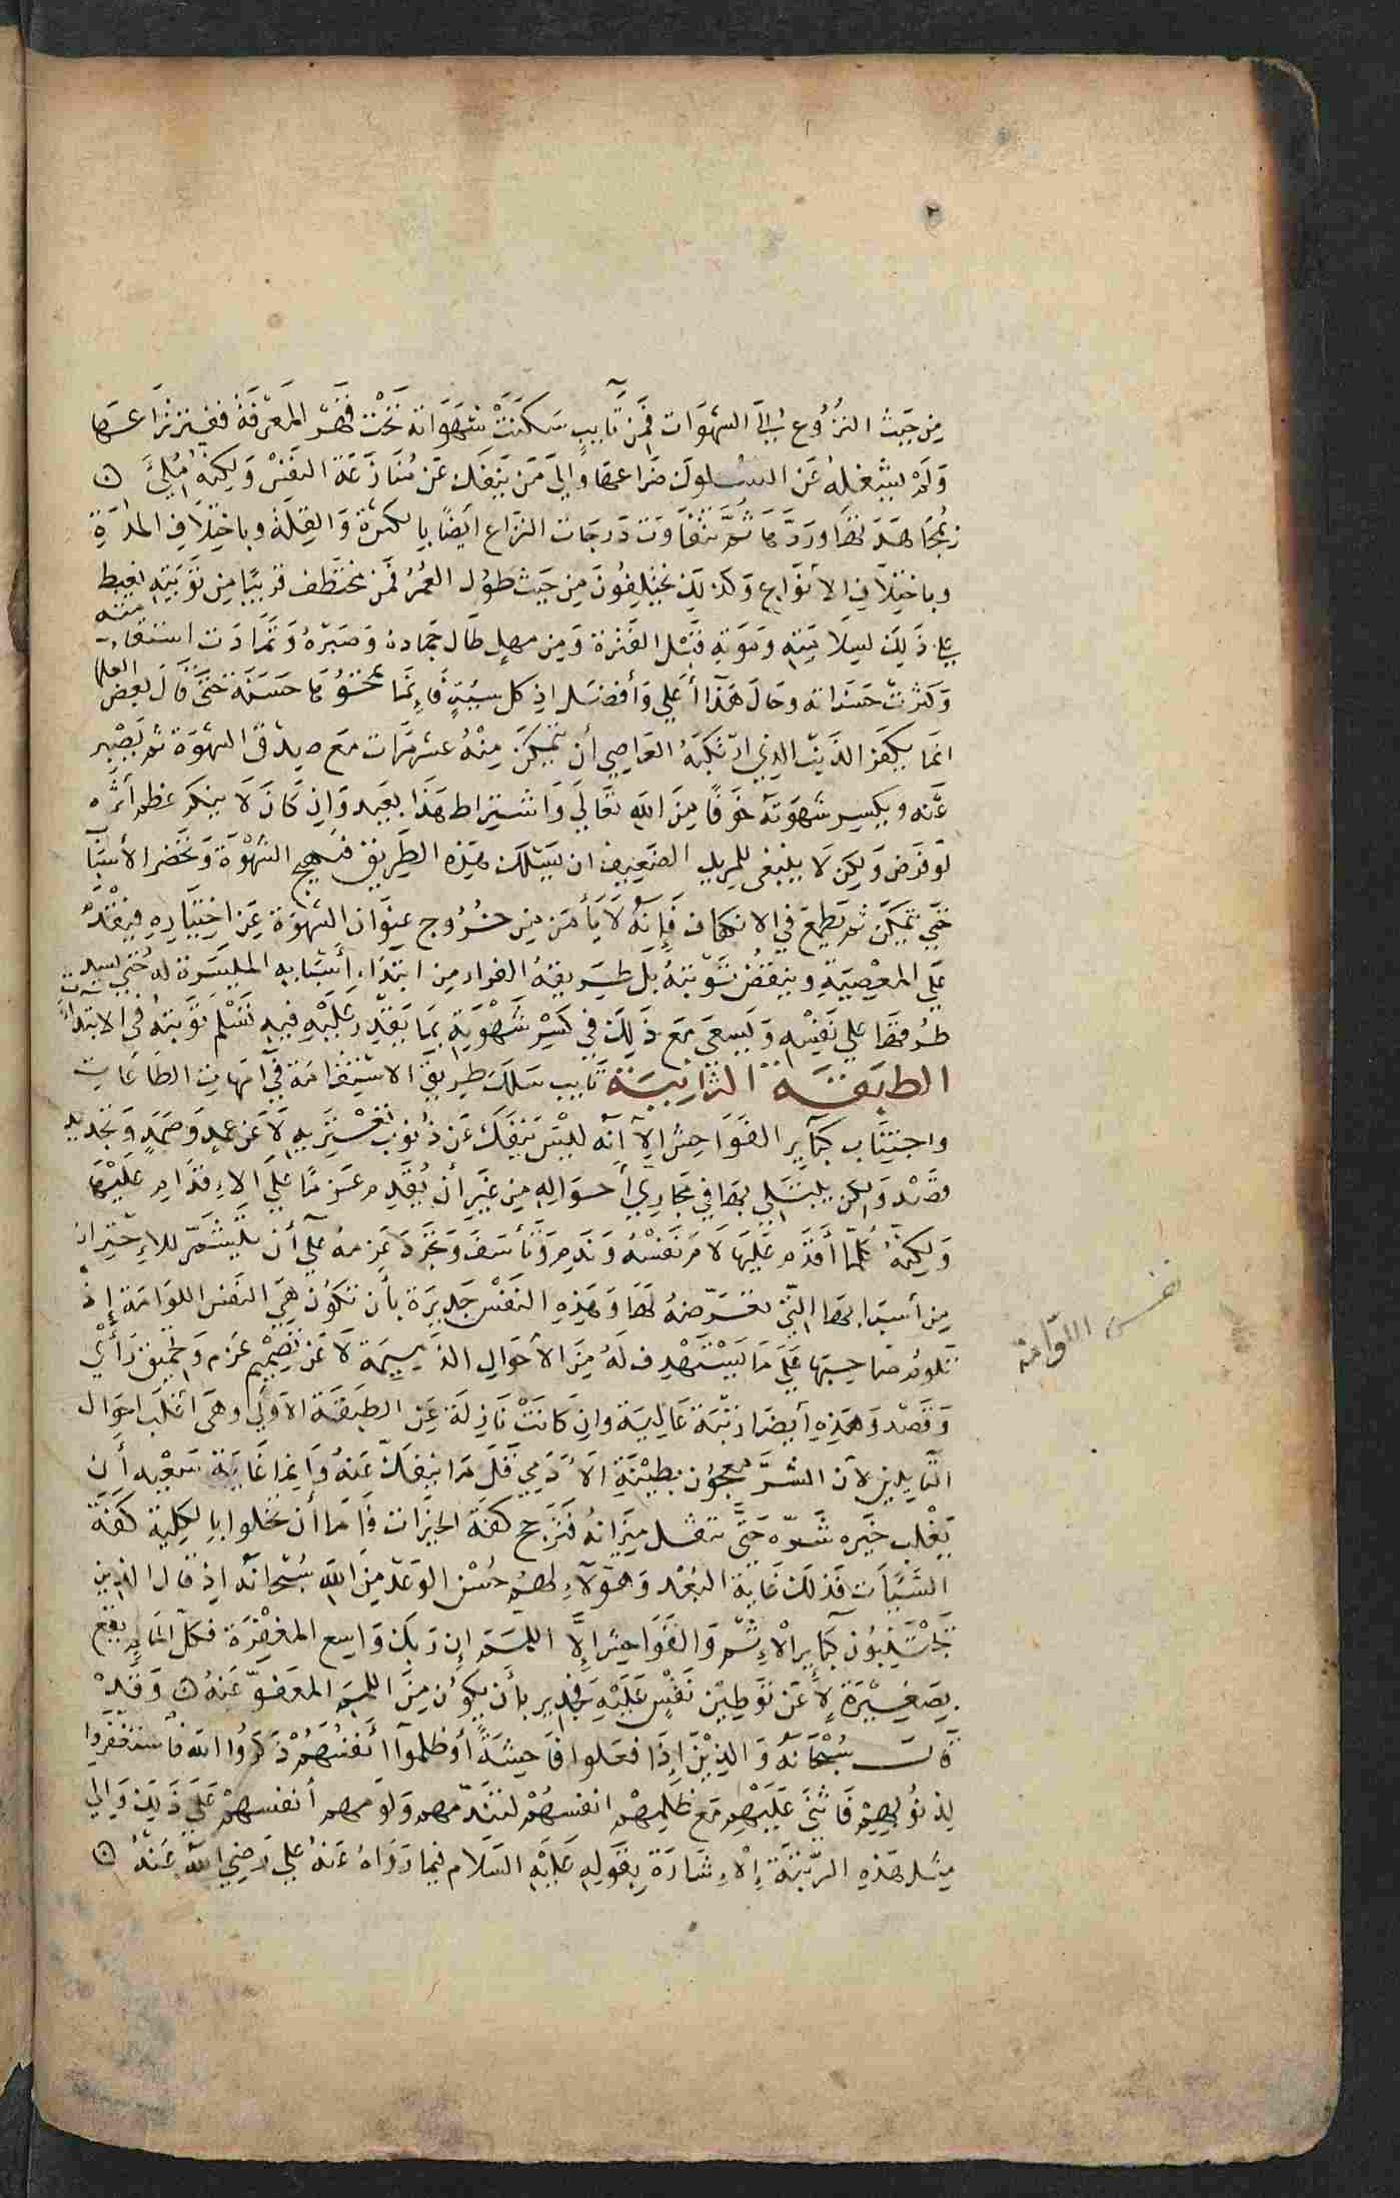 من حيث النزوع إلى الشهوات فمن تايب سكنت شهواته تحت قهر المعرفة ففتر نزاعها
ولم يشغله عن السلوك صراعها وإلى من ينفك عن منازعة النفس ولكنه مليٌّ
بمجاهدتها وردها ثم تتفاوت درجات النزاع أيضًا بالكثرة والقلة وباختلاف المدة
وباختلاف الأنواع وكذلك يختلفون من حيث طول العمر فمن مختطف قريبًا من توبته يغبط
على ذلك لسلامته وموته قبل الفترة ومن مهمل طال جهاده وصبره وتمادت استقامته
وكثرت حسناته وحال هذا أعلى وأفضل إذ كل سيئة فإنما تمحوها حسنة حتى قال بعض العلما
انما يكفر الذنب الذي ارتكبه العاصي أن يتمكن منه عشر مرات مع صدق الشهوة ثم يصبر
عنه ويكسر شهوته خوفًا من الله تعالى واشتراط هذا بعيد وإن كان لا ينكر عظم أثره
لو فرض ولكن لا ينبغي للمريد الضعيف ان يسلك هذه الطريق فتهيج الشهوة وتحضر الأسباب
حتى يتمكن ثم يطمع في الانكفاف فإنه لا يأمن من خروج عنان الشهوة عن اختياره فيقدم
على المعصية وينقض توبته بل طريقه الفرار من ابتداء أسبابه الميسرة له حتى يسد
طرقها على نفسه ويسعى مع ذلك في كسر شهوته بما يقدر عليه فبه تسلم توبته في الابتداء
الطبقة الثانية تايب سلك طريق الاستقامة في أمهات الطاعات
واجتناب كباير الفواحش إلا أنه ليس ينفك عن ذنوب تعتريه لا عن عمد وصمد وتجديد
قصد ولكن يبتلى بها في مجاري أحواله من غير أن يقدم عزمًا على الإقدام عليها
ولكنه كلما أقدم عليها لام نفسه وندم وتأسف وجرد عزمه على أن يتشمر للاحتراز
من أسبابها التي تعرضه لها وهذه النفس جديرة بأن تكون هي النفس اللوامة إذ
نفس اللوّامة
تلوم صاحبها على ما يستهدف له من الأحوال الذميمة لا عن تصميم عزم وتخمين رأي
وقصد وهذه أيضا رتبة عالية وان كانت نازلة عن الطبقة الأولى وهي أغلب أحوال
التايبين لأن الشر معجون بطينة الآدمي قل ما ينفك عنه وإنما غاية سعيه أن
يغلب خيره شره حتى يثقل ميزانه فترجح كفة الخيرات فاما أن تخلوا بالكلية كفة
السيآت فذلك غاية البعد وهؤلاء لهم حسن الوعد من الله سبحانه إذ قال الذين
يجتنبون كباير الإثم والفواحش إلا اللمم إن ربك واسع المغفرة فكل المام يقع
بصغيرة لا عن توطين نفس عليه فجدير بأن يكون من اللمم المعفو عنه وقد
قال سبحانه والذين إذا فعلوا فاحشة أو ظلموا أنفسهم ذكروا الله فاستغفروا
لذنوبهم فأثنى عليهم مع ظلمهم انفسهم لتندمهم ولومهم أنفسهم على ذلك وإلى
مثل هذه الرتبة الإشارة بقوله عليه السلام فيما رواه عنه علي رضي الله عنه